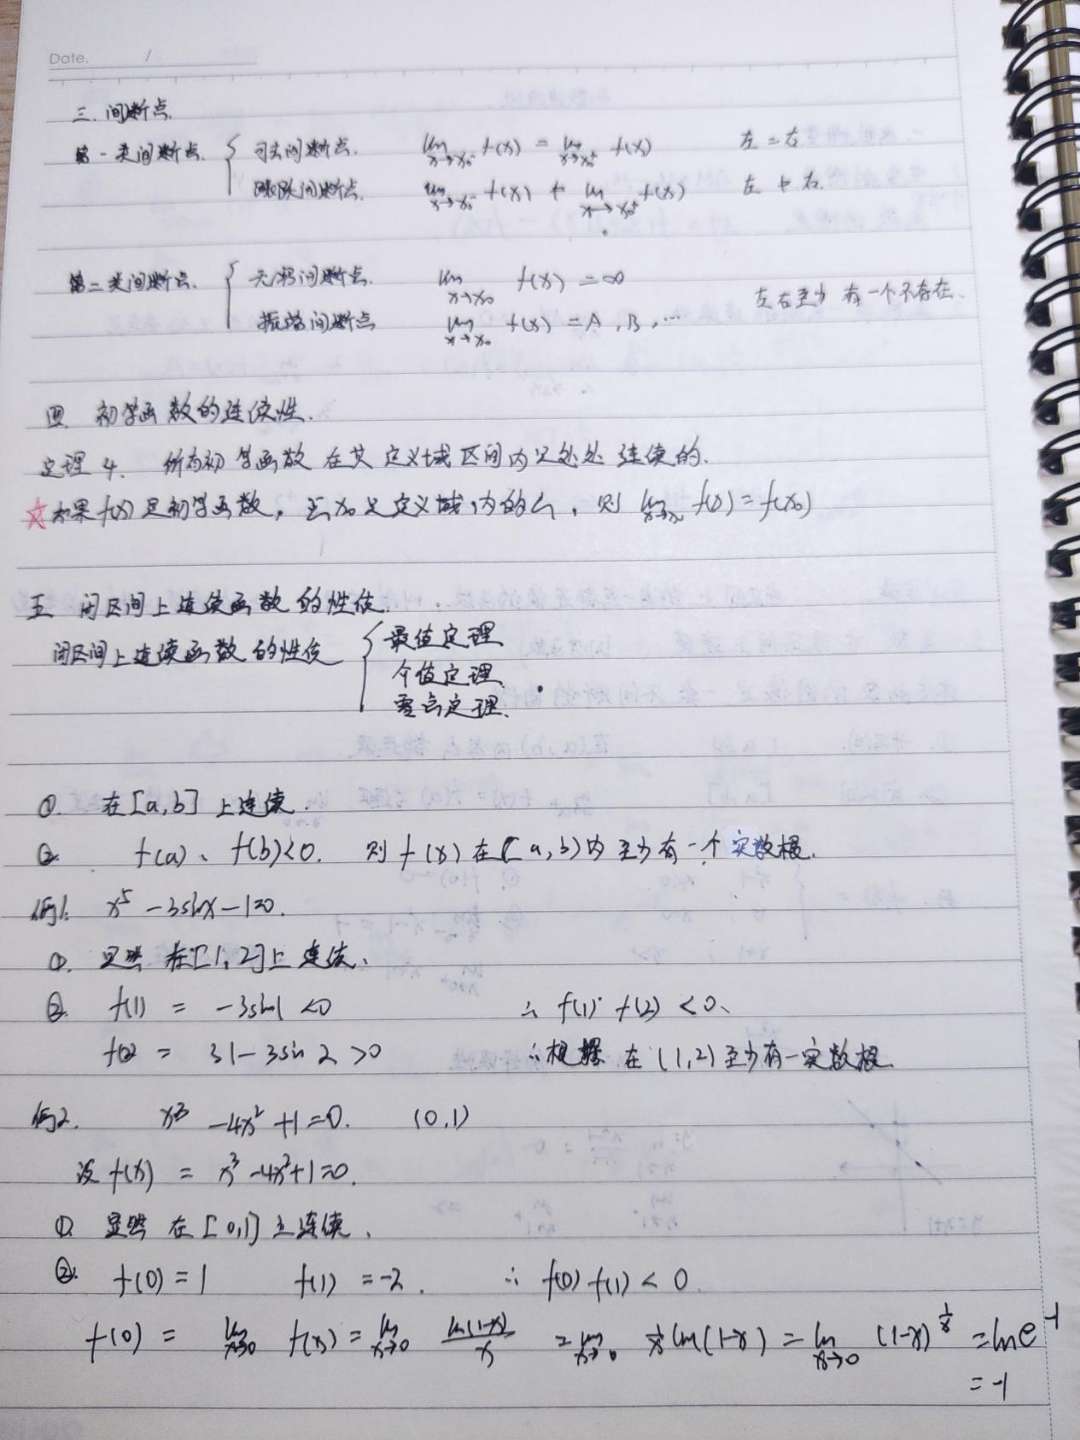 Date. /
三. 间断点.
第一类间断点. { 可去间断点. lim x→x₀⁻ f(x) = lim x→x₀⁺ f(x) 左=右
跳跃间断点. lim x→x₀⁻ f(x) ≠ lim x→x₀⁺ f(x) 左≠右.
第二类间断点. { 无穷间断点. lim x→x₀ f(x) = ∞ 左右至少有一个不存在.
振荡间断点 lim x→x₀ f(x) = A, B, …
四. 初等函数的连续性.
定理4. 所有初等函数在其定义域区间内是处处连续的.
☆如果f(x)是初等函数, 且x₀是定义域内的点, 则 lim x→x₀ f(x) = f(x₀)
五 闭区间上连续函数的性质.
闭区间上连续函数的性质 { 最值定理
介值定理.
零点定理.
①. 在[a,b]上连续.
② f(a)、f(b)<0. 则f(x)在(a,b)内至少有一个实数根.
例1. x⁵-3sinx-1=0.
①. 显然在[1,2]上连续.
②. f(1) = -3sin1 <0 ∴ f(1)·f(2) <0.
f(2) = 31-3sin2 >0 ∴根据 在(1,2)至少有一实数根.
例2. x³-4x²+1=0. (0,1)
设f(x) = x³-4x²+1=0.
①. 显然在[0,1]上连续.
②. f(0)=1 f(1)=-2. ∴ f(0)f(1)<0.
f(0) = lim x→0 f(x) = lim x→0 ln(1-x)/x = lim x→0 1/x ln(1-x) = lim x→0 (1-x)^1/x = ln e⁻¹
= -1